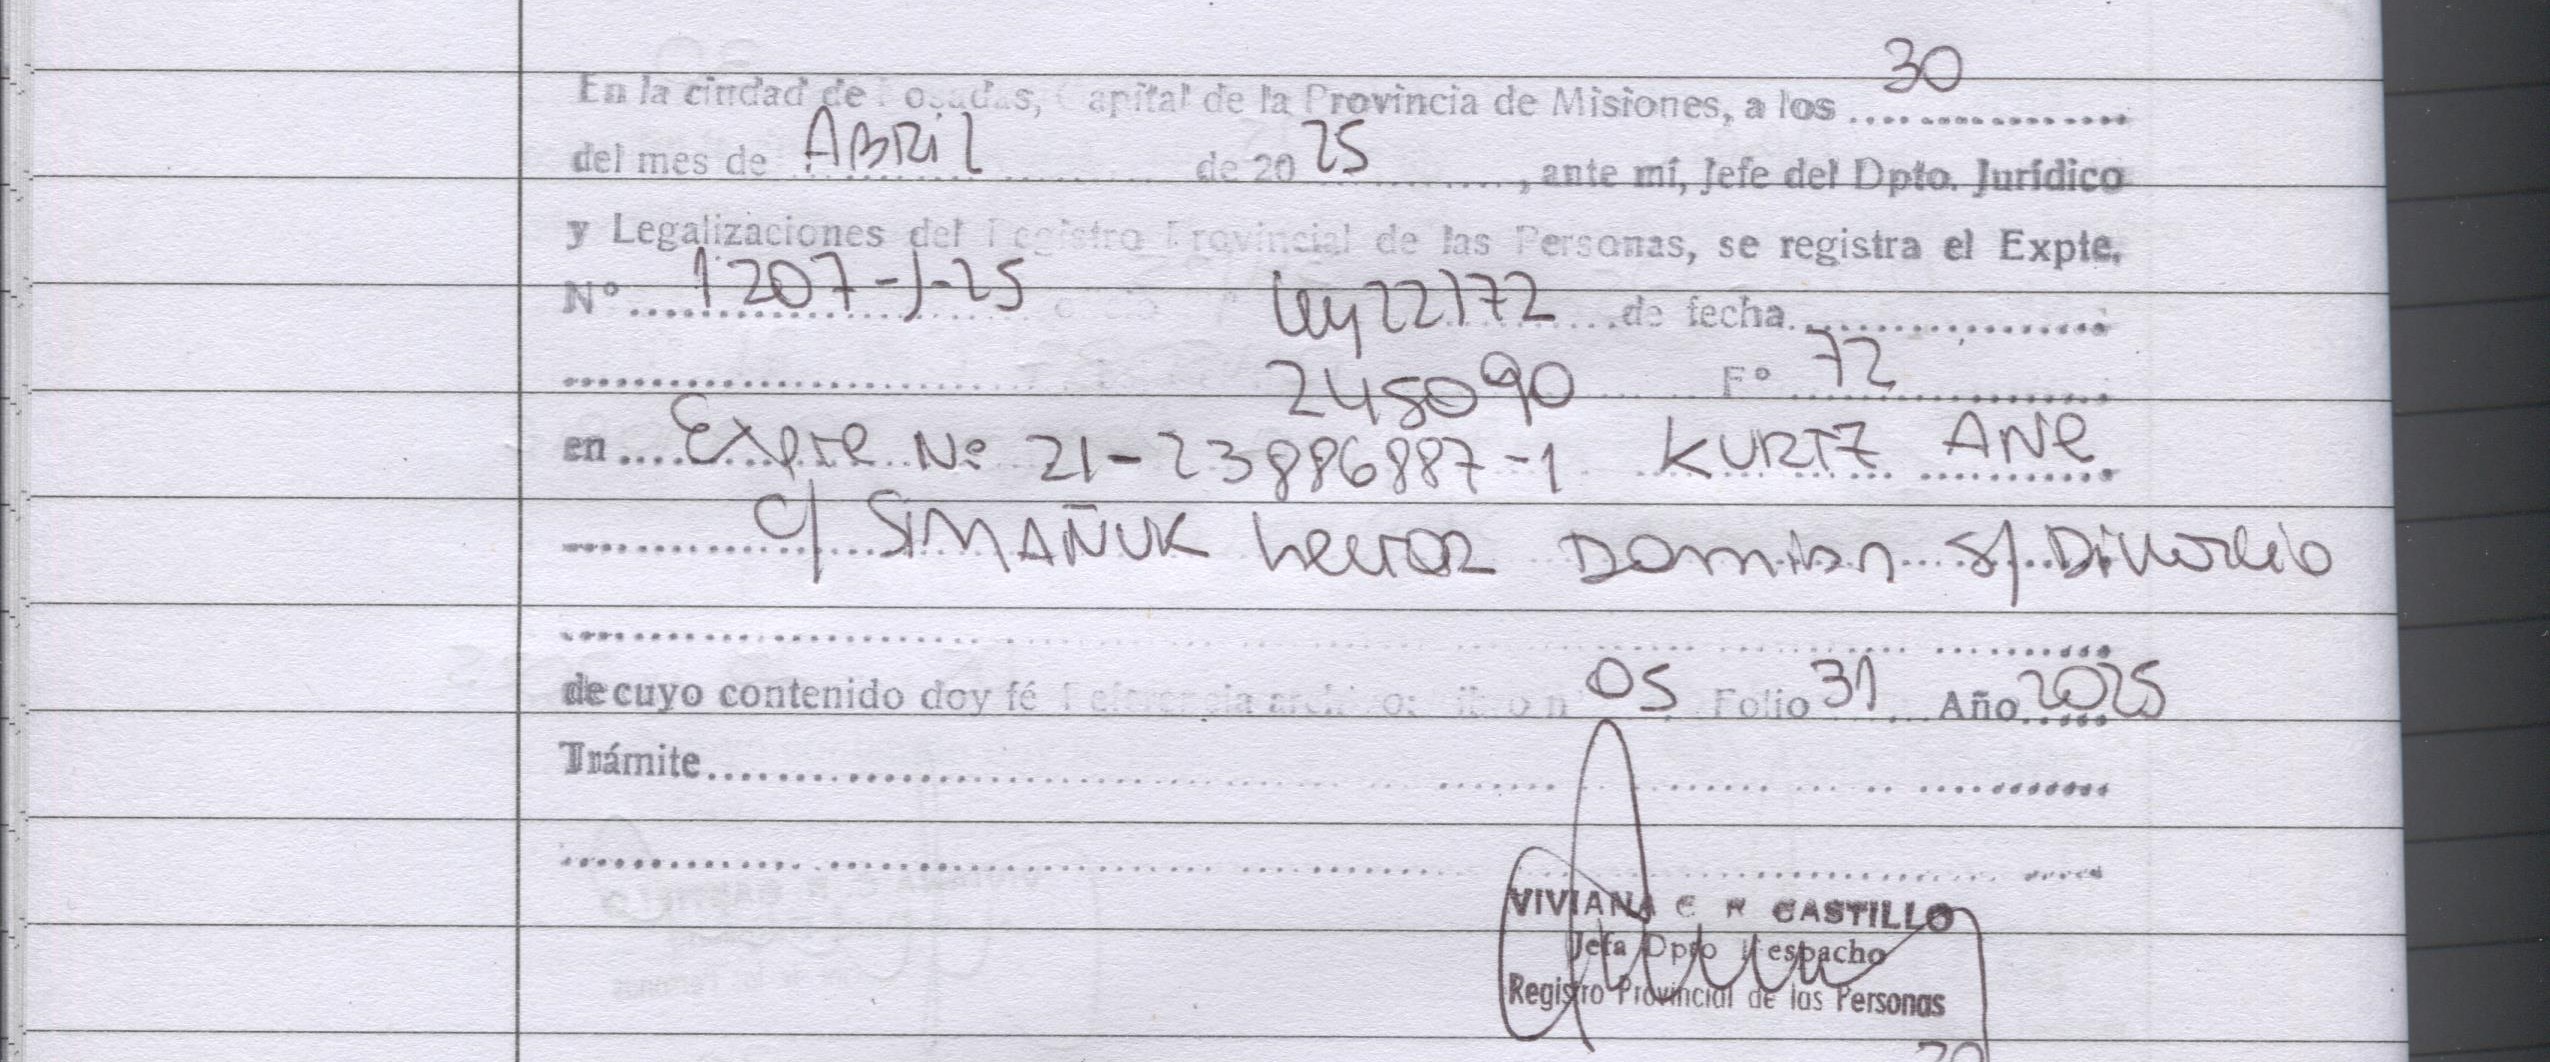 En la ciudad de Posadas, Capital de la Provincia de Misiones, a los 30
del mes de ABRIL de 20 25, ante mí, Jefe del Dpto. Jurídico
y Legalizaciones del Registro Provincial de las Personas, se registra el Expte.
N° 1207-J-25 Ley 22172 de fecha
245090 F° 72
en Expte Nº 21-23886887-1 KURTZ ANE
c/ SIMAÑUK Hector Damian s/ Divorcio
de cuyo contenido doy fé Referencia archivo: libro n 05 Folio 31 Año 2025
Trámite
VIVIANA C R CASTILLO
Jefa Dpto Despacho
Registro Provincial de las Personas